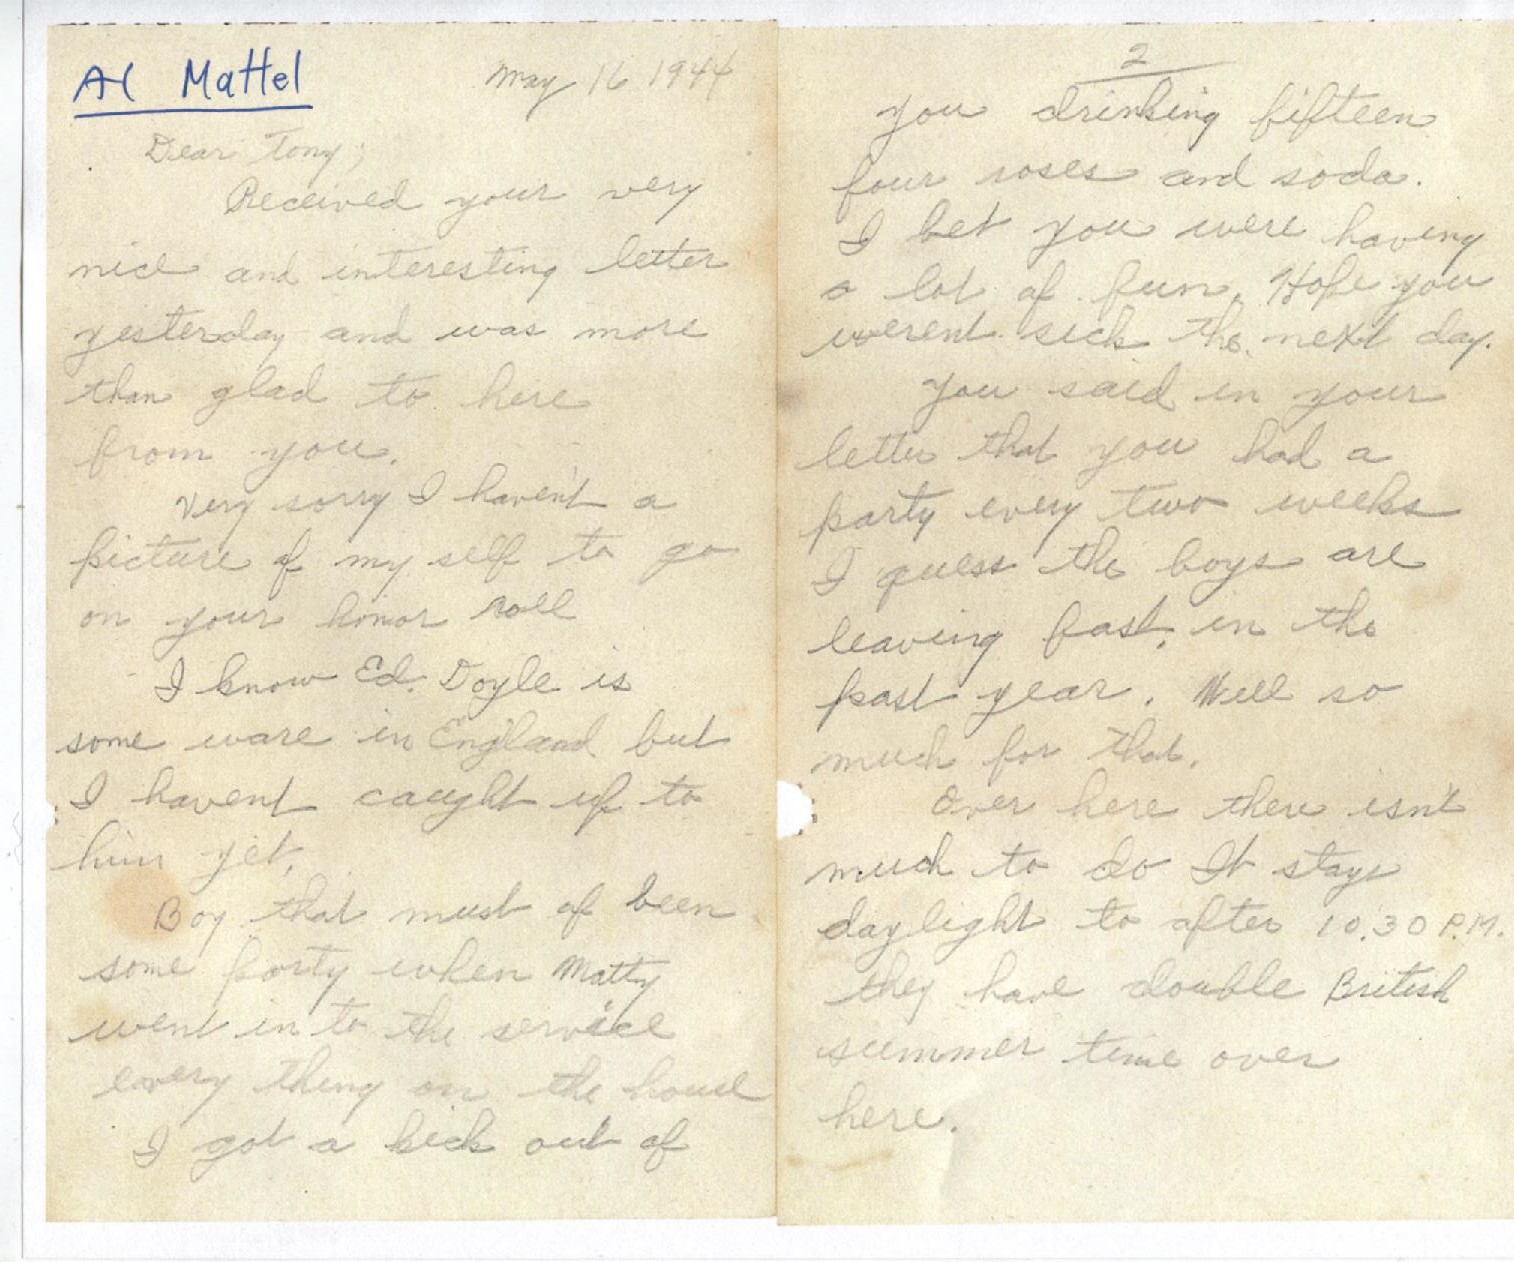 Al Mattel
May 16 1944
Dear Tony;
Received your very
nice and interesting letter
yesterday and was more
than glad to here
from you.
Very sorry I haven't a
picture of my self to go
on your honor roll
I know Ed. Doyle is
some ware in England but
I havent caught up to
him yet.
Boy that must of been
some party when Matty
went in to the service
every thing on the house
I got a kick out of
2
you drinking fifteen
four roses and soda.
I bet you were having
a lot of fun. Hope you
werent sick the next day.
You said in your
letter that you had a
party every two weeks
I guess the boys are
leaving fast, in the
past year. Well so
much for that.
Over here there isn't
much to do It stays
daylight to after 10.30 P.M.
they have double British
summer time over
here.